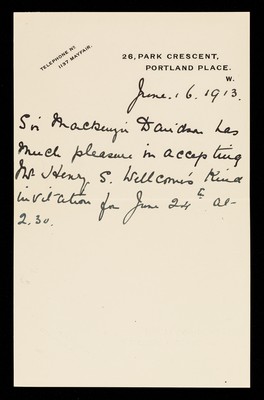 TELEPHONE No
1197 MAYFAIR.
26, PARK CRESCENT,
PORTLAND PLACE.
W.
June. 16. 1913.
Sir Mackenzie Davidson has
much pleasure in accepting
Mr Henry S. Wellcome's Kind
invitation for June 24th at
2.30.